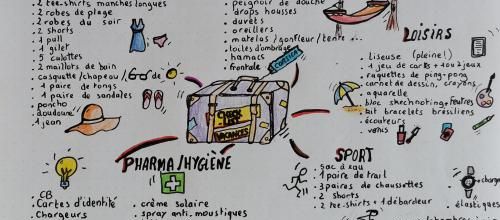 2 tee-shirts manches longues
2 robes de plage
2 robes du soir
2 shorts
1 pull
1 gilet
5 culottes
2 maillots de bain
casquette/chapeau/
1 paire de tongs
1 paire de sandales
poncho
doudoune
1 jean
peignoir de douche
drops housses
duvets
oreillers
matelas/gonfleur/tente...
toiles d'ombrage
hamacs
frontale
CORSICA
Check list
VACANCES
LOISIRS
liseuse (pleine!)
1 jeu de cartes + 1 ou 2 jeux
raquettes de ping-pong
carnet de dessin, crayons,
aquarelle
bloc sketchnoting + feutres
kit bracelets brésiliens
écouteurs
vernis
PHARMA/HYGIÈNE
crème solaire
spray anti-moustiques
CB
Cartes d'identité
Chargeurs
SPORT
sac à eau
1 paire de trail
3 paires de chaussettes
2 shorts
2 tee-shirts + 1 débardeur
chargeur
élastiques